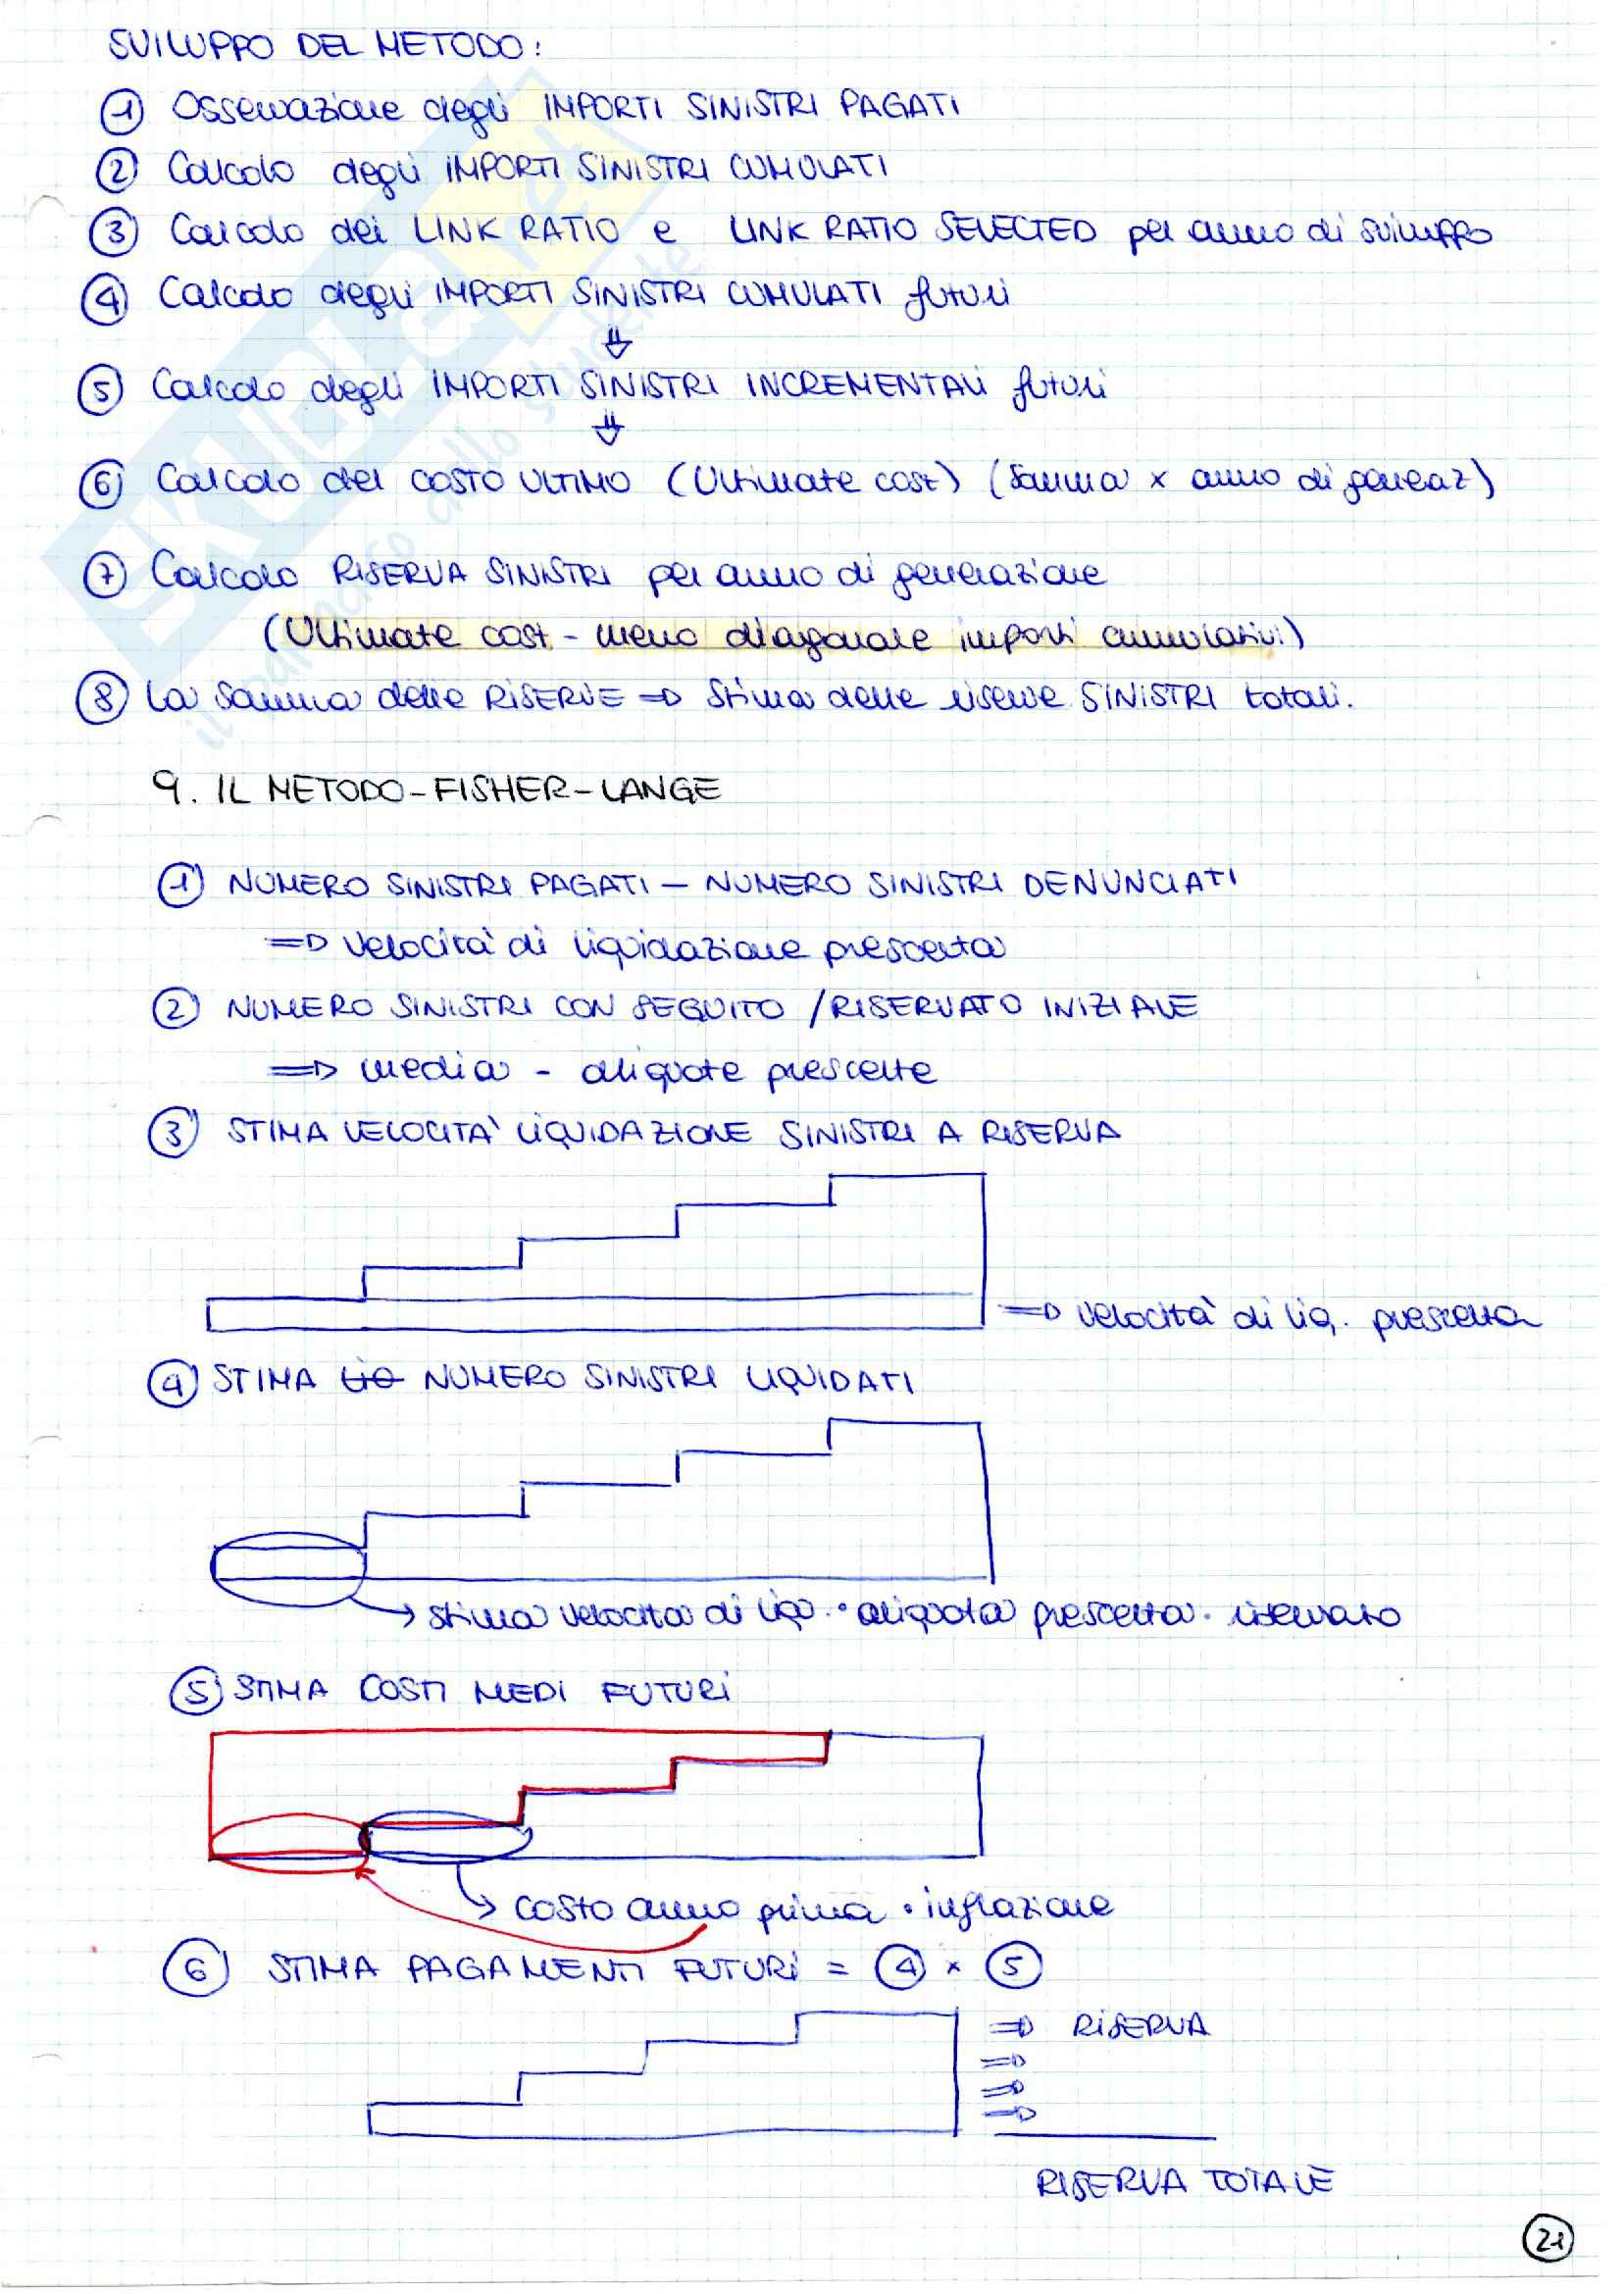 SVILUPPO DEL METODO:
① Osservazione degli IMPORTI SINISTRI PAGATI
② Calcolo degli IMPORTI SINISTRI CUMULATI
③ Calcolo dei LINK RATIO e LINK RATIO SELECTED per anno di sviluppo
④ Calcolo degli IMPORTI SINISTRI CUMULATI futuri
⇓
⑤ Calcolo degli IMPORTI SINISTRI INCREMENTALI futuri
⇓
⑥ Calcolo del COSTO ULTIMO (Ultimate cost) (somma x anno di generaz)
⑦ Calcolo RISERVA SINISTRI per anno di generazione
(Ultimate cost - meno diagonale importi cumulativi)
⑧ La somma delle RISERVE ⇒ stima delle riserve SINISTRI totali.
9. IL METODO-FISHER-LANGE
① NUMERO SINISTRI PAGATI - NUMERO SINISTRI DENUNCIATI
⇒ velocità di liquidazione prescelta
② NUMERO SINISTRI CON SEGUITO / RISERVATO INIZIALE
⇒ media - aliquote prescelte
③ STIMA VELOCITA' LIQUIDAZIONE SINISTRI A RISERVA
⇒ velocità di liq. prescelta
④ STIMA NUMERO SINISTRI LIQUIDATI
→ stima velocità di liq. · aliquota prescelta · riservato
⑤ STIMA COSTI MEDI FUTURI
→ costo anno prima · inflazione
⑥ STIMA PAGAMENTI FUTURI = ④ x ⑤
⇒ RISERVA
⇒
⇒
⇒
RISERVA TOTALE
21
SKUOLA.net
il paradiso dello studente